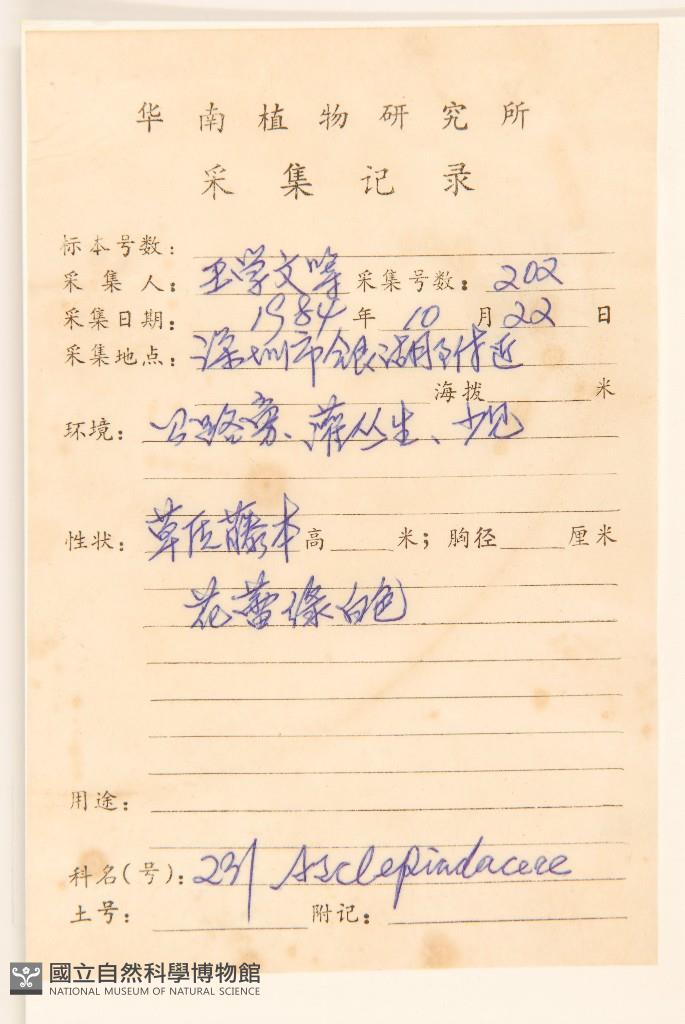 华南植物研究所
采集记录
标本号数：
采集人：王学文等 采集号数：202
采集日期：1984年10月22日
采集地点：深圳市银湖附近
海拨 米
环境：公路旁、灌丛生、少见
性状：草质藤本 高 米；胸径 厘米
花蕾绿白色
用途：
科名(号)：231 Asclepiadaceae
土号： 附记：
國立自然科學博物館
NATIONAL MUSEUM OF NATURAL SCIENCE